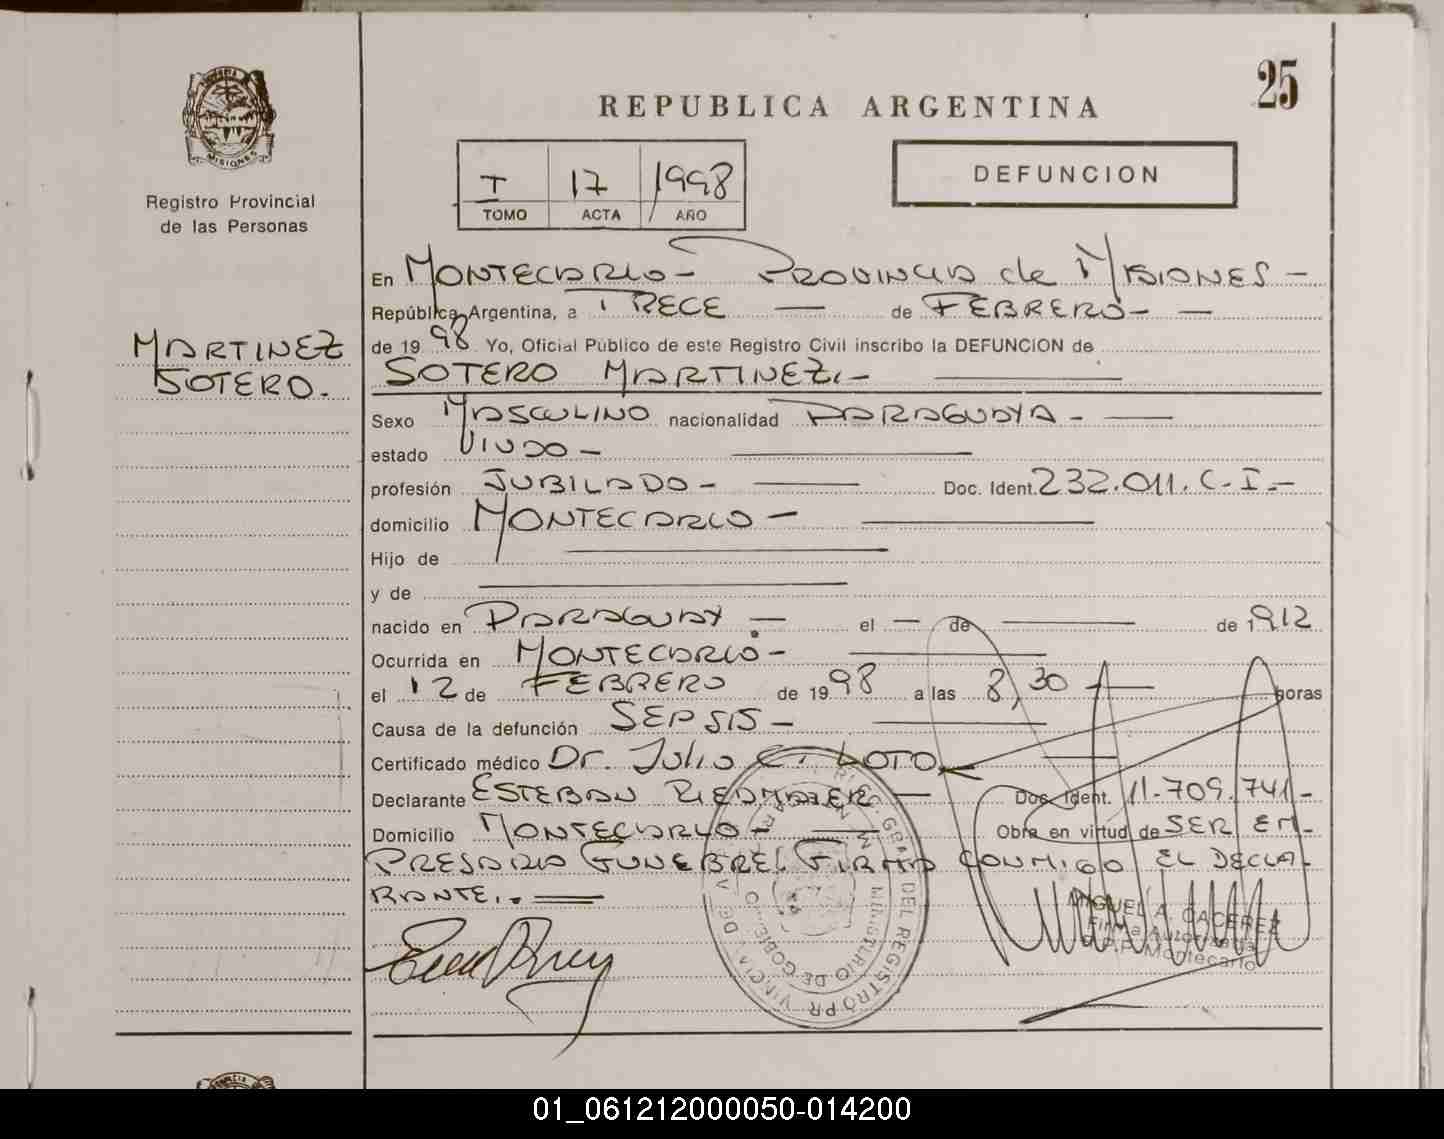 25
REPUBLICA ARGENTINA
MISIONES
Registro Provincial
de las Personas
I 17 1998
TOMO ACTA AÑO
DEFUNCION
MARTINEZ
SOTERO.
En MONTECARLO - PROVINCIA de MISIONES -
República Argentina, a TRECE — de FEBRERO - —
de 19 98 Yo, Oficial Público de este Registro Civil inscribo la DEFUNCION de
SOTERO MARTINEZ.-
Sexo MASCULINO nacionalidad PARAGUAYA -
estado VIUDO -
profesión JUBILADO - Doc. Ident. 232.011. C.I.-
domicilio MONTECARLO -
Hijo de
y de
nacido en PARAGUAY — el — de — de 1912
Ocurrida en MONTECARLO -
el 12 de FEBRERO de 19 98 a las 8,30 horas
Causa de la defunción SEPSIS -
Certificado médico Dr. Julio C. LOTO
Declarante ESTEBAN RIEDMAIER — Doc. Ident. 11.709.741-
Domicilio MONTECARLO - Obra en virtud de SER EM-
PRESARIO FUNEBRE. FIRMA CONMIGO EL DECLA-
RANTE.-
MIGUEL A. CACEREZ
Firma Autorizada
R.P.P. Montecarlo
01_061212000050-014200